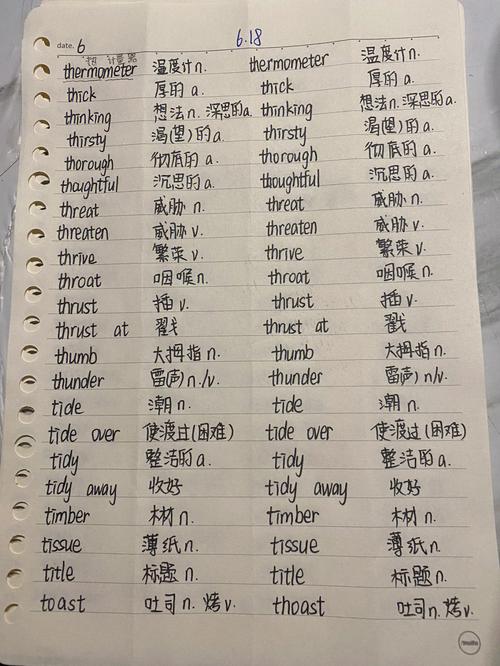 date. 6 6.18
热 计量器
thermometer 温度计n. thermometer 温度计n.
thick 厚的 a. thick 厚的 a.
thinking 想法n. 深思的a. thinking 想法n. 深思的a.
thirsty 渴(望)的 a. thirsty 渴(望)的 a.
thorough 彻底的 a. thorough 彻底的 a.
thoughtful 沉思的 a. thoughtful 沉思的 a.
threat 威胁 n. threat 威胁 n.
threaten 威胁 v. threaten 威胁 v.
thrive 繁荣 v. thrive 繁荣 v.
throat 咽喉 n. throat 咽喉 n.
thrust 插 v. thrust 插 v.
thrust at 戳 thrust at 戳
thumb 大拇指 n. thumb 大拇指 n.
thunder 雷(声) n./v. thunder 雷(声) n/v.
tide 潮 n. tide 潮 n.
tide over 使渡过(困难) tide over 使渡过(困难)
tidy 整洁的 a. tidy 整洁的 a.
tidy away 收好 tidy away 收好
timber 木材 n. timber 木材 n.
tissue 薄纸 n. tissue 薄纸 n.
title 标题 n. title 标题 n.
toast 吐司 n. 烤 v. thoast 吐司 n. 烤 v.